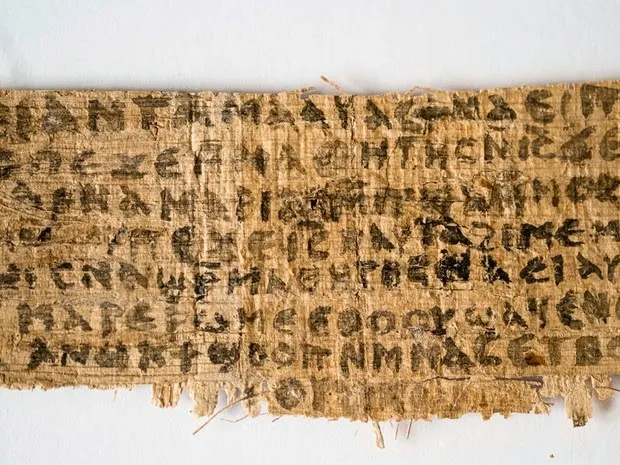 ⲁⲛ ⲧⲁⲙⲁⲁⲩ ⲁⲥϯ ⲛⲁⲉⲓ ⲡ
ⲡⲉϫⲉ ⲙⲙⲁⲑⲏⲧⲏⲥ ⲛⲓ̅ⲥ̅ ϫⲉ
ⲁⲣⲛⲁ ⲙⲁⲣⲓⲁⲙ ⲙⲡϣⲁ ⲙⲙⲟⲥ
ⲡⲉϫⲉ ⲓ̅ⲥ̅ ⲛⲁⲩ ⲧⲁϩⲓⲙⲉ ⲙ
ⲥⲛⲁϣⲣⲙⲁⲑⲏⲧⲏⲥ ⲛⲁⲉⲓ ⲁⲩ
ⲙⲁⲣⲉⲣⲱⲙⲉ ⲉⲑⲟⲟⲩ ϣⲁϥⲉ ⲛ
ⲁⲛⲟⲕ ϯϣⲟⲟⲡ ⲛⲙⲙⲁⲥ ⲉⲧⲃ